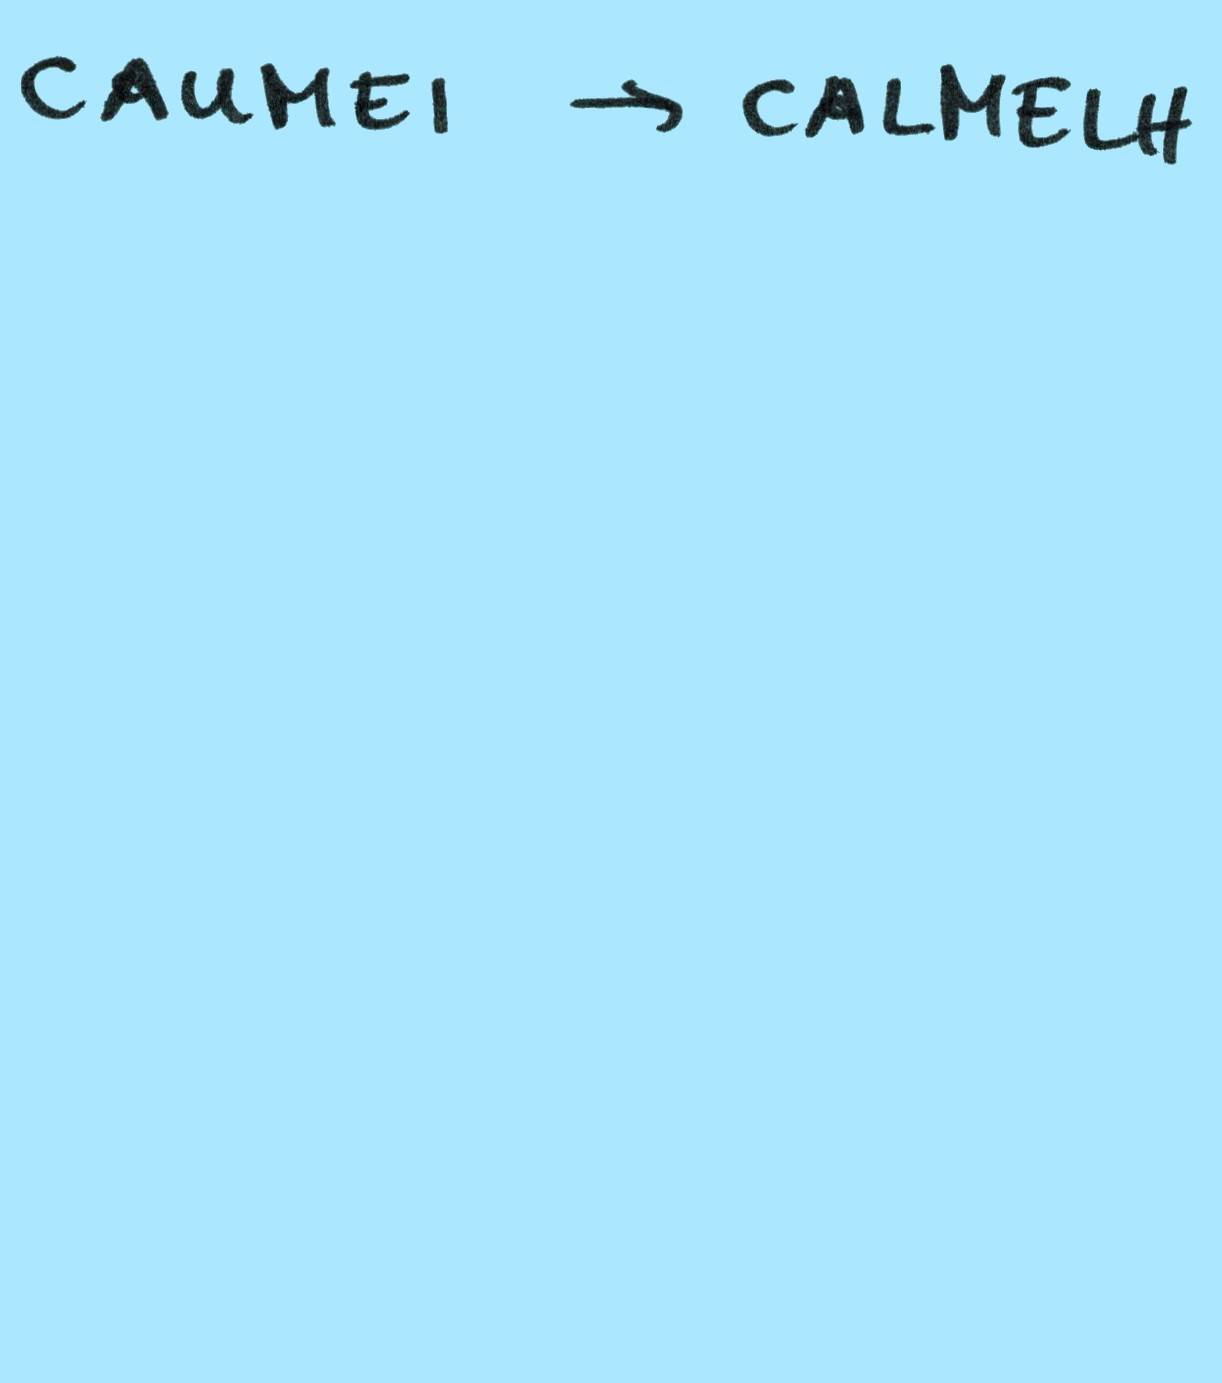 CAUMEI → CALMELH